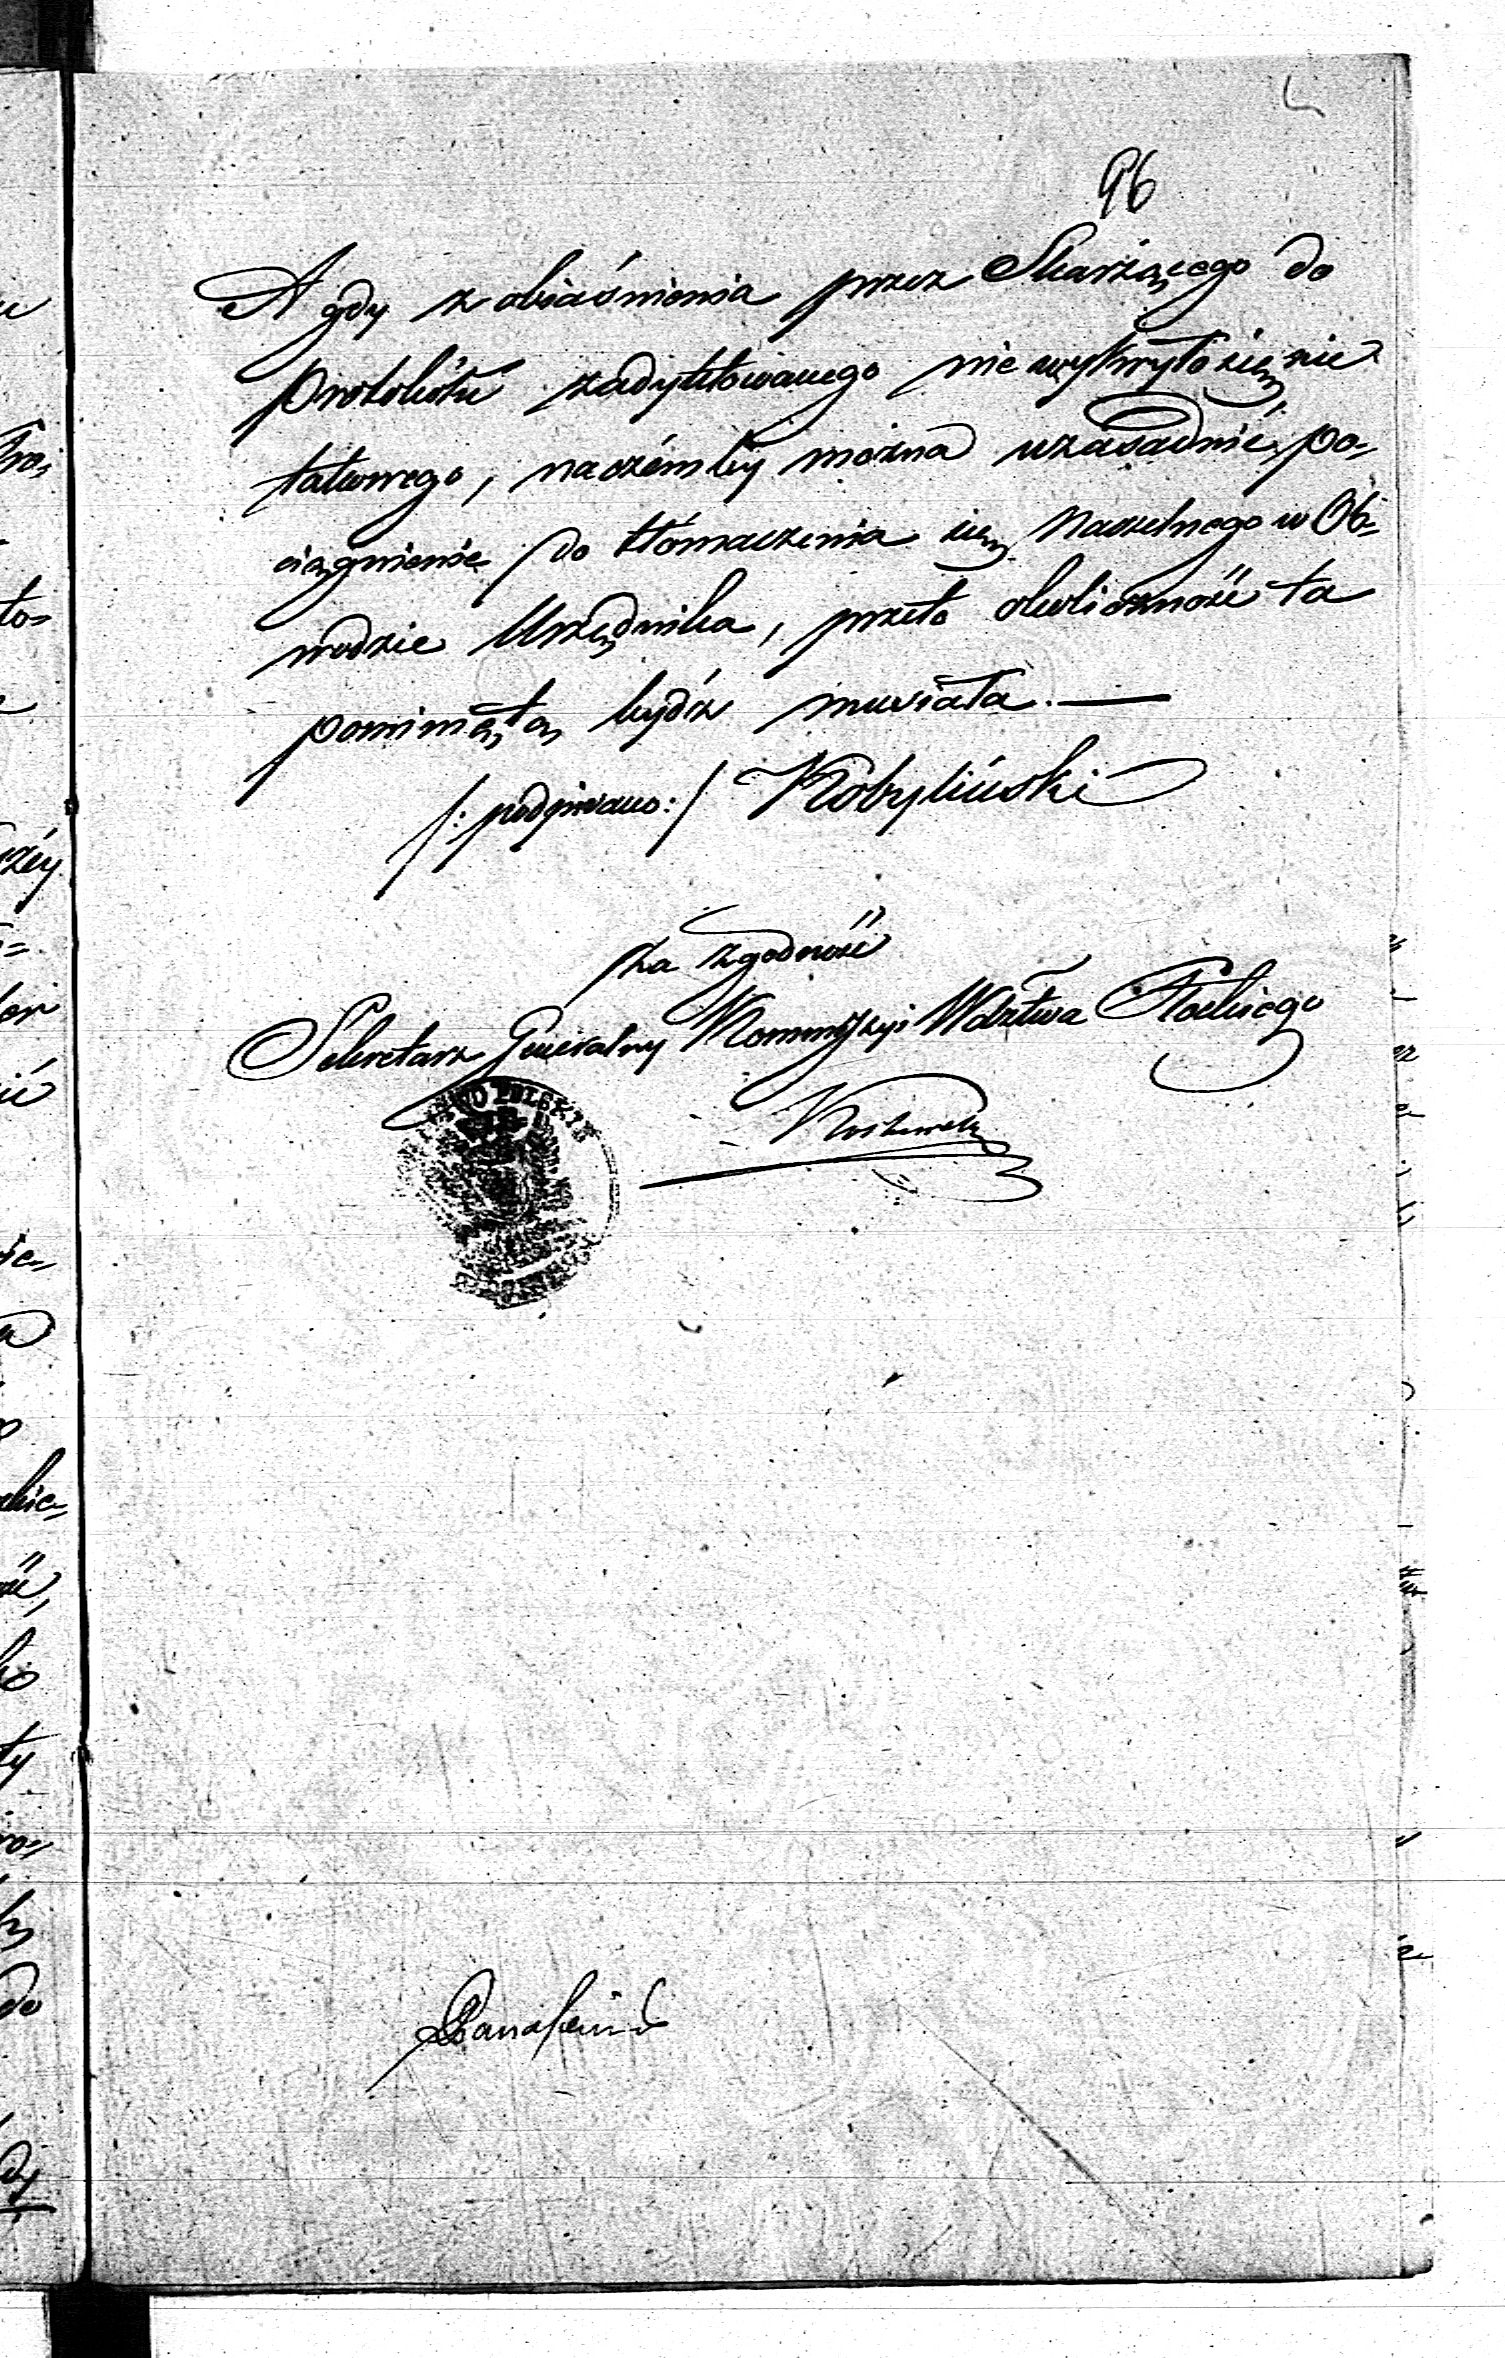 96
A gdy z obiaśnienia przez Skarżącego do
Protokółu zadyktowanego nie wykryło się nic
takowego, na czémby można uzasadnić po-
ciągnienie do tłómaczenia się Naczelnego w Ob-
wodzie Urzędnika, przeto okoliczność ta
pominiętą bydź musiała. —
/: podpisano :/ Kobyliński
Za zgodność
Sekretarz Generalny Kommissyi Wdztwa Płockiego